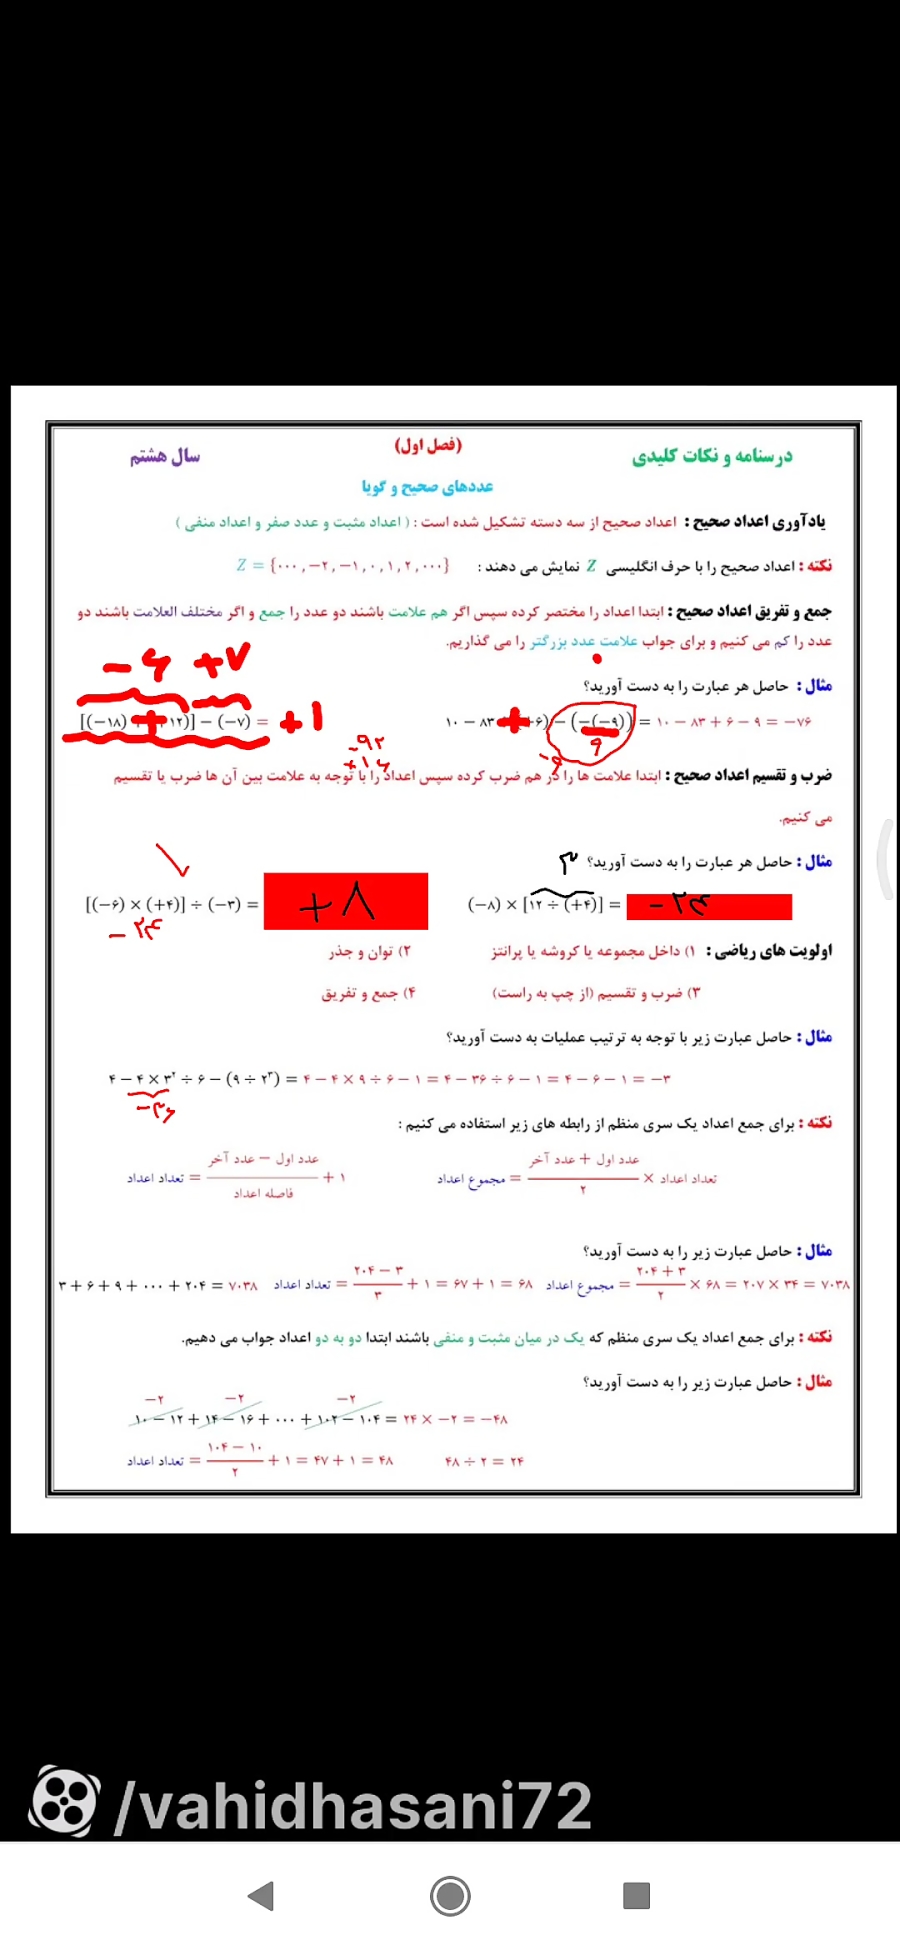 درسنامه و نکات کلیدی (فصل اول) سال هشتم
عددهای صحیح و گویا
یادآوری اعداد صحیح : اعداد صحیح از سه دسته تشکیل شده است : ( اعداد مثبت و عدد صفر و اعداد منفی )
نکته : اعداد صحیح را با حرف انگلیسی Z نمایش می دهند : Z = {⋯ , −۲ , −۱ , ۰ , ۱ , ۲ , ⋯}
جمع و تفریق اعداد صحیح : ابتدا اعداد را مختصر کرده سپس اگر هم علامت باشند دو عدد را جمع و اگر مختلف العلامت باشند دو
عدد را کم می کنیم و برای جواب علامت عدد بزرگتر را می گذاریم.
−۶ +۷
مثال : حاصل هر عبارت را به دست آورید؟
۱۰ − ۸۳ + ۶) − (−(−۹)) = ۱۰ − ۸۳ + ۶ − ۹ = −۷۶
[(−۱۸) + ۱۲)] − (−۷) = +۱
۹
−۹
−۹۲
+۱۶
ضرب و تقسیم اعداد صحیح : ابتدا علامت ها را در هم ضرب کرده سپس اعداد را با توجه به علامت بین آن ها ضرب یا تقسیم
می کنیم.
مثال : حاصل هر عبارت را به دست آورید؟ ۳
(−۸) × [۱۲ ÷ (+۴)] = −۲۴
[(−۶) × (+۴)] ÷ (−۳) = +۸
−۲۴
اولویت های ریاضی : ۱) داخل مجموعه یا کروشه یا پرانتز ۲) توان و جذر
۳) ضرب و تقسیم (از چپ به راست) ۴) جمع و تفریق
مثال : حاصل عبارت زیر با توجه به ترتیب عملیات به دست آورید؟
۴ − ۴ × ۳² ÷ ۶ − (۹ ÷ ۲³) = ۴ − ۴ × ۹ ÷ ۶ − ۱ = ۴ − ۳۶ ÷ ۶ − ۱ = ۴ − ۶ − ۱ = −۳
−۳۶
نکته : برای جمع اعداد یک سری منظم از رابطه های زیر استفاده می کنیم :
مجموع اعداد = عدد اول + عدد آخر / ۲ × تعداد اعداد
تعداد اعداد = عدد اول − عدد آخر / فاصله اعداد + ۱
مثال : حاصل عبارت زیر را به دست آورید؟
۳ + ۶ + ۹ + ⋯ + ۲۰۴ = ۷۰۳۸ تعداد اعداد = ۲۰۴ − ۳ / ۳ + ۱ = ۶۷ + ۱ = ۶۸ مجموع اعداد = ۲۰۴ + ۳ / ۲ × ۶۸ = ۲۰۷ × ۳۴ = ۷۰۳۸
نکته : برای جمع اعداد یک سری منظم که یک در میان مثبت و منفی باشند ابتدا دو به دو اعداد جواب می دهیم.
مثال : حاصل عبارت زیر را به دست آورید؟
−۲ −۲ −۲
۱۰ − ۱۲ + ۱۴ − ۱۶ + ⋯ + ۱۰۲ − ۱۰۴ = ۲۴ × −۲ = −۴۸
تعداد اعداد = ۱۰۴ − ۱۰ / ۲ + ۱ = ۴۷ + ۱ = ۴۸ ۴۸ ÷ ۲ = ۲۴
/vahidhasani72